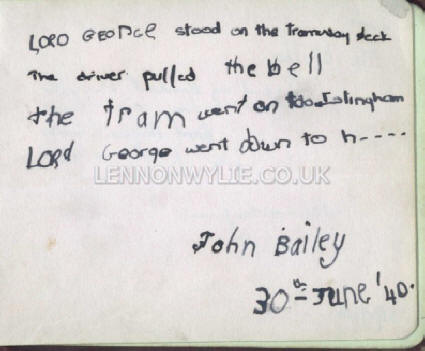 LORD GEORGE stood on the Tramway deck
The driver pulled the bell
the Tram went on to
LORD George went down to h----
LENNONWYLIE.CO.UK
John Bailey
30th June '40.